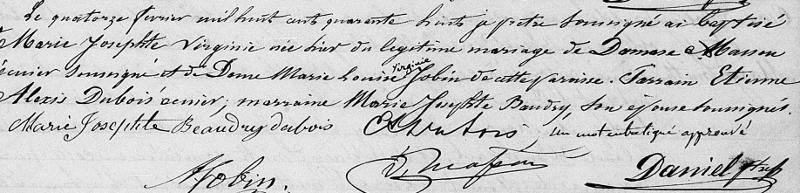 Le quatorze fevrier mil huit cent quarante huit je prêtre soussigné ai baptisé
Marie Josephte Virginie née hier du legitime mariage de Damase Masson
écuier soussigné et de Dame Marie Louise Virginie Jobin de cette Paroisse. Parrain Etienne
Alexis Dubois écuier; marraine Marie Josephte Baudry, son épouse soussignés.
Marie Josephte Beaudry dubois EADubois, Un mot entreligné approuvé
D. Masson
AJobin. Daniel ptre